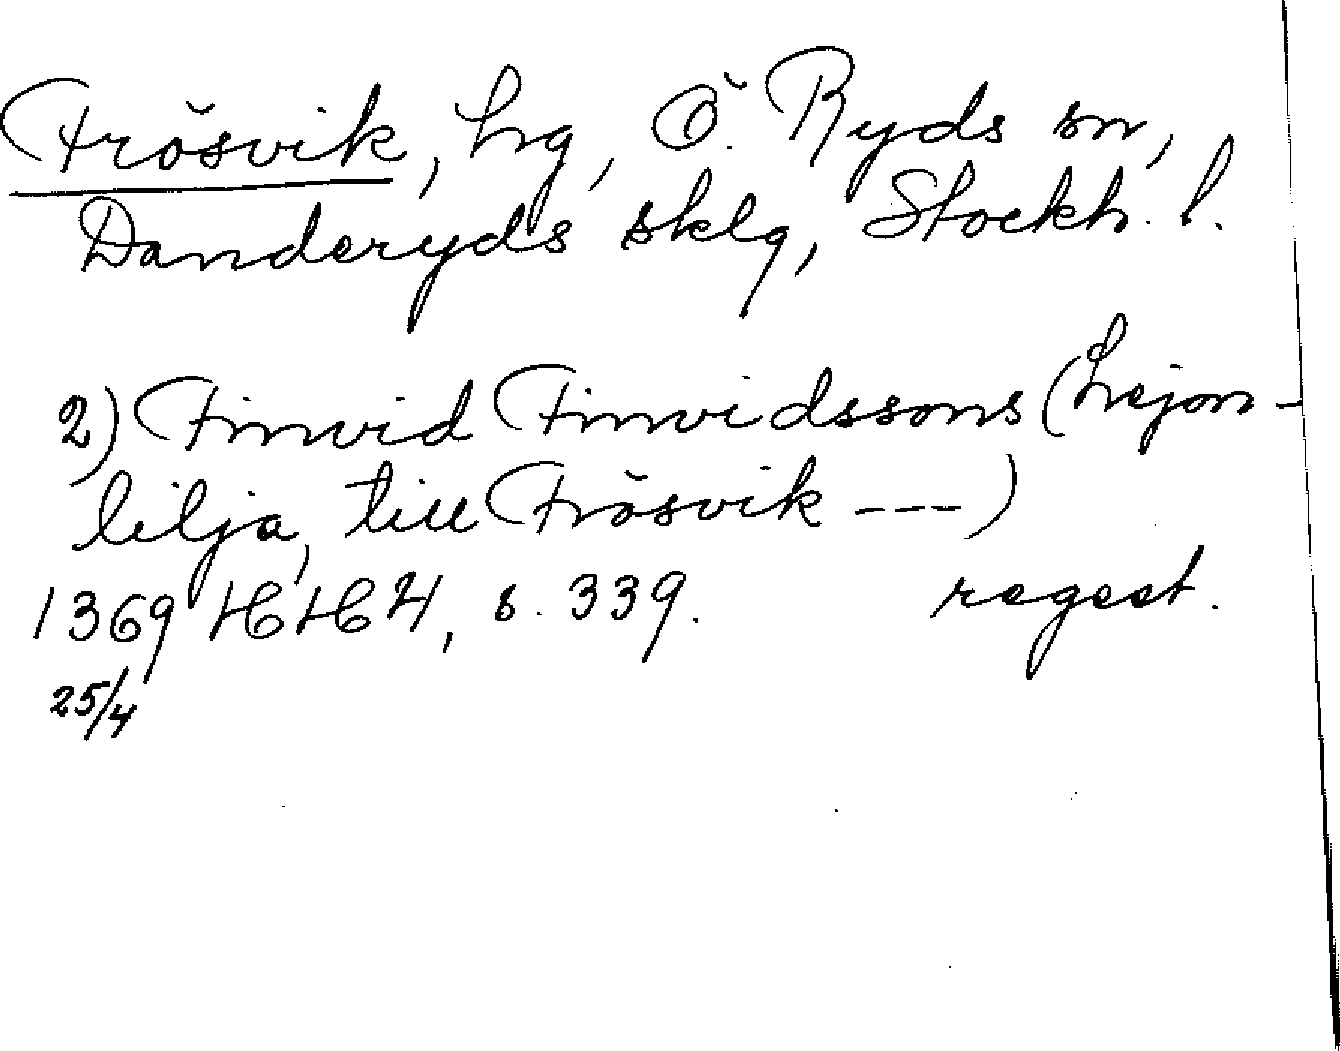 Frösvik, hg, Ö. Ryds sn,
Danderyds sklg, Stockh. l.
2) Finvid Finvidssons (Lejon-
lilja, till Frösvik ---)
1369 HH 24, s. 339. regest.
25/4